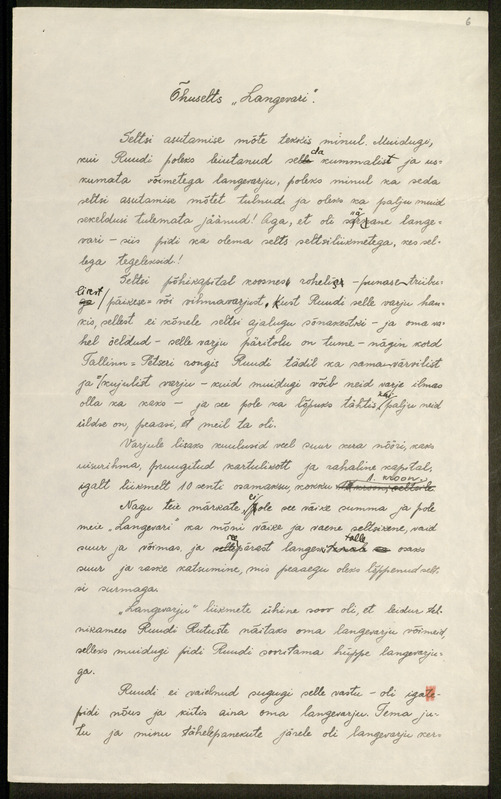 6
Õhuselts „Langevari".
Seltsi asutamise mõte tekkis minul. Muidugi,
kui Ruudi poleks leiutanud seda kummalist ja us-
kumata võimetega langevarju, poleks minul ka seda
seltsi asutamise mõtet tulnud ja oleks ka palju muid
sekeldusi tulemata jäänud! Aga, et oli säärane lange-
vari – siis pidi ka olema selts seltsiliikmetega, kes sel-
lega tegeleksid!
Seltsi põhikapital koosnes rohelise – punase – triibu-
lisest päikese- või vihmavarjust, kust Ruudi selle varju han-
kis, sellest ei kõnele seltsi ajalugu sõnakestki – ja oma va-
hel öeldud – selle varju päritolu on tume – nägin kord
Tallinn – Petseri rongis Ruudi tädil ka sama-värvilist
ja -kujulist varju – kuid muidugi võib neid varje ilmas
olla ka kaks – ja see pole ka lõpuks tähtis, kui palju neid
üldse on, peaasi, et meil ta oli.
Varjule lisaks kuulusid veel suur kera nööri, kaks
uisurihma, pruugitud kartulikott ja rahaline kapital,
igalt liikmelt 10 senti osamaksu, kokku 1. kroon.
Nagu teie märkate, ei ole see väike summa ja pole
meie „Langevari" ka mõni väike ja vaene seltsikene, vaid
suur ja võimas, ja seepärast langes talle osaks
suur ja raske katsumine, mis peaaegu oleks lõppenud selt-
si surmaga.
„Langevarju" liikmete ühine soov oli, et leidur teh-
nikamees Ruudi Rutuste näitaks oma langevarju võimeid,
selleks muidugi pidi Ruudi sooritama hüppe langevarju-
ga.
Ruudi ei vaielnud sugugi selle vastu – oli igate-
pidi nõus ja kiitis aina oma langevarju. Tema ju-
tu ja minu tähelepanekute järele oli langevarju ker-